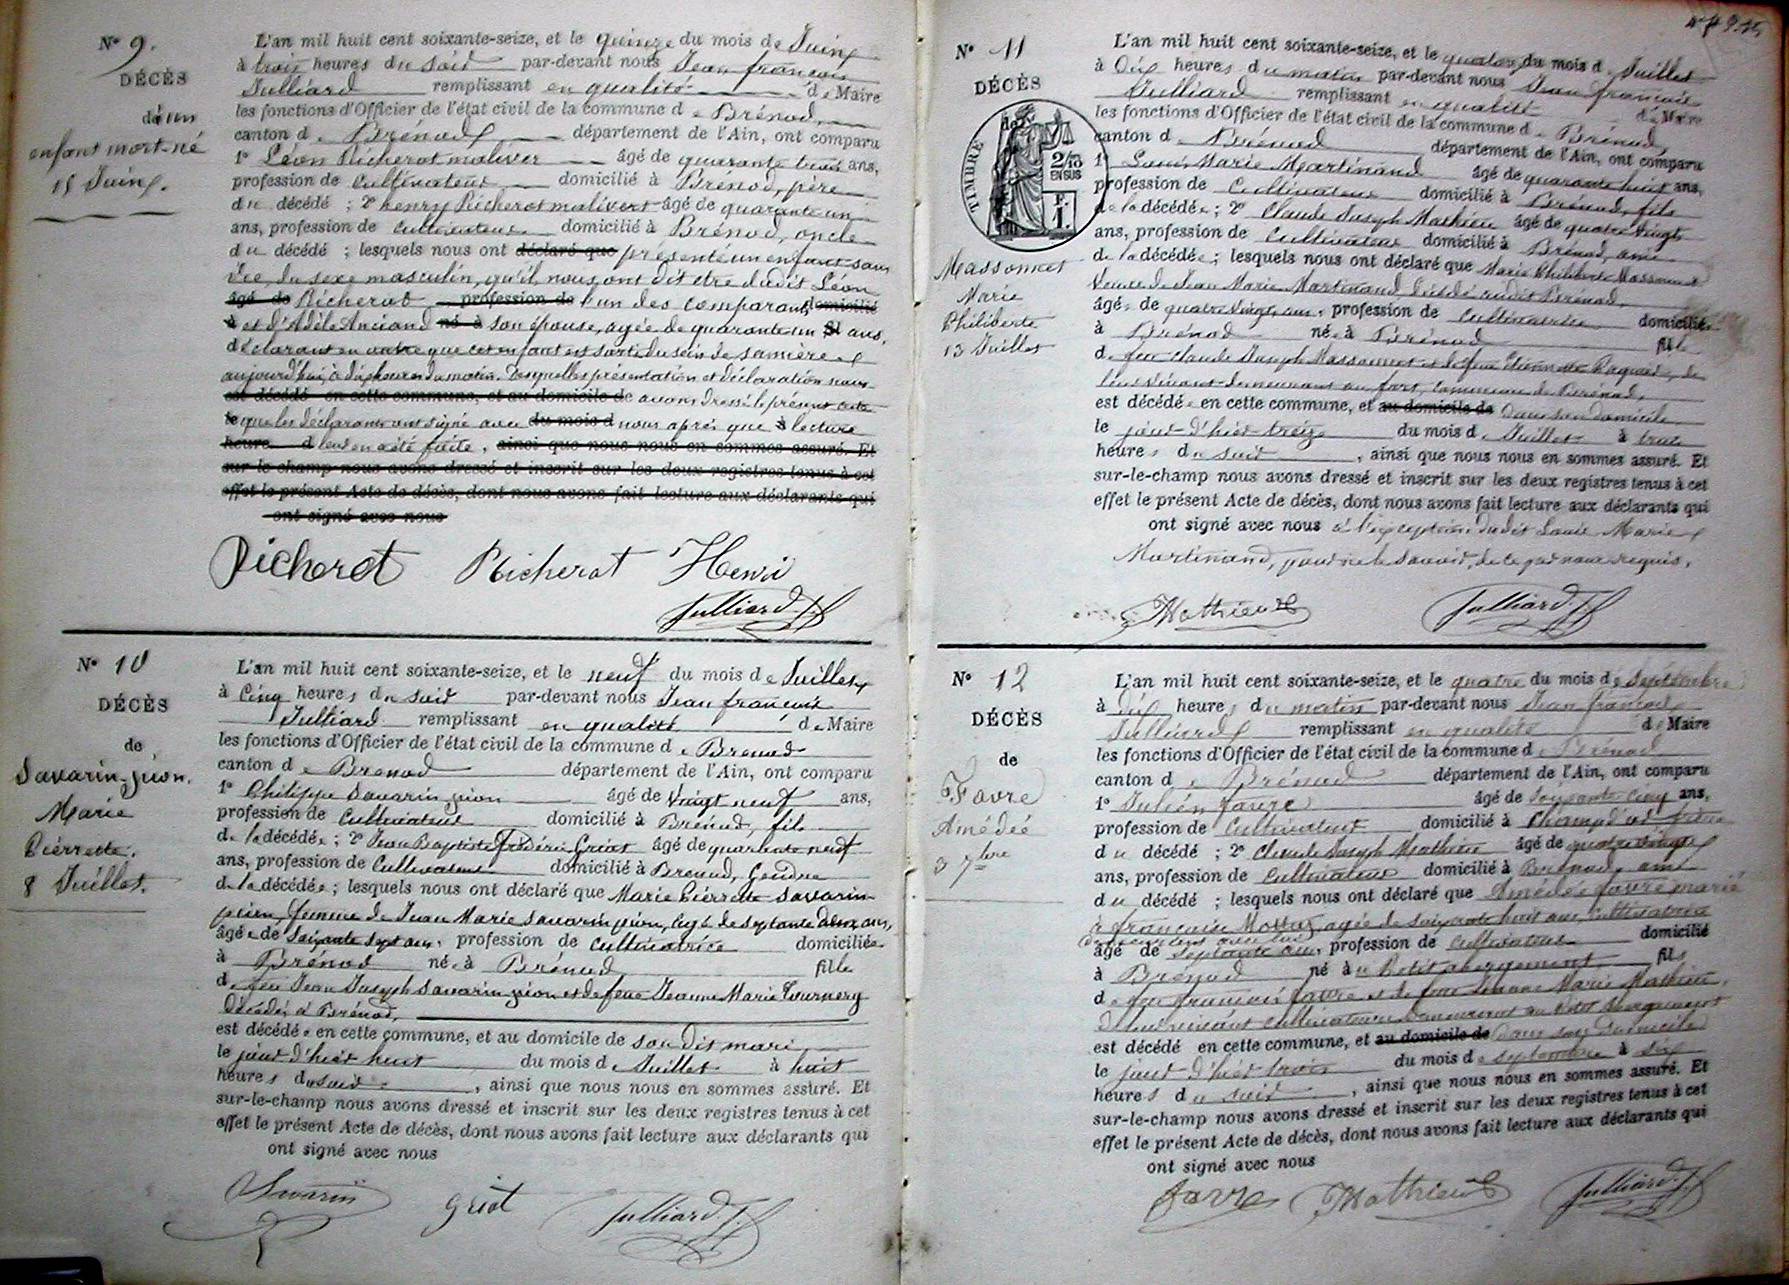 N° 9.
DÉCÈS
de un
enfant mort-né
15 Juin.
L'an mil huit cent soixante-seize, et le quinze du mois de Juin
à trois heures du soir par-devant nous Jean françois
Julliard remplissant en qualité de Maire
les fonctions d'Officier de l'état civil de la commune de Brénod,
canton de Brénod département de l'Ain, ont comparu
1° Léon Richerot maliver âgé de quarante trois ans,
profession de Cultivateur domicilié à Brénod, père
du décédé ; 2° henry Richerot malivert âgé de quarante un
ans, profession de Cultivateur domicilié à Brénod, oncle
du décédé ; lesquels nous ont déclaré que présenté un enfant sans
vie, du sexe masculin, qu'il nous ont dit être dudit Léon
âgé de Richerot profession de l'un des comparant domicilié
à et d'Adèle Anciand né à son épouse, agée de quarante un ans,
déclarant en outre que cet enfant est sorti du sein de sa mère
aujourd'hui, à dix heures du matin. Lesquelles présentation et déclaration nous
est décédé en cette commune, et au domicile de avons dressé le présent acte
le que les déclarants ont signé avec du mois d nous après que lecture
heure d leur en a été faite, ainsi que nous nous en sommes assuré. Et
sur-le-champ nous avons dressé et inscrit sur les deux registres tenus à cet
effet le présent Acte de décès, dont nous avons fait lecture aux déclarants qui
ont signé avec nous
Richerot Richerot Henri
Julliard J. f
N° 10
DÉCÈS
de
Savarin-pion.
Marie
Pierrette.
8 Juillet.
L'an mil huit cent soixante-seize, et le neuf du mois de Juillet
à Cinq heures du soir par-devant nous Jean françois
Julliard remplissant en qualité de Maire
les fonctions d'Officier de l'état civil de la commune de Brenod
canton de Brenod département de l'Ain, ont comparu
1° Philippe Savarin pion âgé de Vingt neuf ans,
profession de Cultivateur domicilié à Brénod, fils
de la décédée ; 2° Jean Baptiste Frédéric Griot âgé de quarante neuf
ans, profession de Cultivateur domicilié à Brenod, Gendre
de la décédée ; lesquels nous ont déclaré que Marie Pierrette Savarin
pion, femme de Jean Marie Savarin pion, âgé de septante deux ans,
âgée de Soixante sept ans, profession de Cultivatrice domiciliée
à Brénod née à Brénod fille
de feu Jean Joseph Savarin pion et de feue Jeanne Marie Tournery
décédés à Brénod,
est décédée en cette commune, et au domicile de son dit mari
le jour d'hier huit du mois de Juillet à huit
heures du soir, ainsi que nous nous en sommes assuré. Et
sur-le-champ nous avons dressé et inscrit sur les deux registres tenus à cet
effet le présent Acte de décès, dont nous avons fait lecture aux déclarants qui
ont signé avec nous
Savarin Griot Julliard J. f
N° 11
DÉCÈS
de
TIMBRE
2/10
EN SUS
F.
1.
Massonnet
Marie
Philiberte
13 Juillet
L'an mil huit cent soixante-seize, et le quatorze du mois de Juillet
à Dix heures du matin par-devant nous Jean françois
Julliard remplissant en qualité de Maire
les fonctions d'Officier de l'état civil de la commune de Brénod,
canton de Brénod département de l'Ain, ont comparu
1° Louis Marie Martinand âgé de quarante huit ans,
profession de Cultivateur domicilié à Brénod, fils
de la décédée ; 2° Claude Joseph Mathieu âgé de quatre vingts
ans, profession de Cultivateur domicilié à Brénod, ami
de la décédée ; lesquels nous ont déclaré que Marie Philiberte Massonnet
Veuve de Jean Marie Martinand décédé audit Brénod,
âgée de quatre vingts ans, profession de Cultivatrice domiciliée
à Brénod née à Brénod fille
de feu Claude Joseph Massonnet et de feue Etiennette Paquet, de
leur vivant demeurant au fort, commune de Brénod,
est décédée en cette commune, et au domicile de dans son domicile
le jour d'hier treize du mois de Juillet à trois
heures du soir, ainsi que nous nous en sommes assuré. Et
sur-le-champ nous avons dressé et inscrit sur les deux registres tenus à cet
effet le présent Acte de décès, dont nous avons fait lecture aux déclarants qui
ont signé avec nous à l'exception du dit Louis Marie
Martinand, pour ne le savoir, de ce par nous requis.
Mathieu Julliard J. f
N° 12
DÉCÈS
de
Favre
Amédée
3 7bre
L'an mil huit cent soixante-seize, et le quatre du mois de Septembre
à dix heures du matin par-devant nous Jean françois
Julliard remplissant en qualité de Maire
les fonctions d'Officier de l'état civil de la commune de Brénod
canton de Brénod département de l'Ain, ont comparu
1° Julien favre âgé de Soixante Cinq ans,
profession de Cultivateur domicilié à Champdor frère
du décédé ; 2° Claude Joseph Mathieu âgé de quatre vingts
ans, profession de Cultivateur domicilié à Brénod, ami
du décédé ; lesquels nous ont déclaré que Amédée favre marié
à françoise Mottet, agée de soixante huit ans cultivatrice
demeurant avec lui
âgé de septante ans, profession de Cultivateur domicilié
à Brénod né à u Petit abergement fils
de feu françois favre et de feue Jeanne Marie Mathieu,
de leur vivant cultivateurs demeurant au Petit abergement
est décédé en cette commune, et au domicile de dans son domicile
le jour d'hier trois du mois de septembre à six
heures du soir, ainsi que nous nous en sommes assuré. Et
sur-le-champ nous avons dressé et inscrit sur les deux registres tenus à cet
effet le présent Acte de décès, dont nous avons fait lecture aux déclarants qui
ont signé avec nous
favre Mathieu Julliard J. f